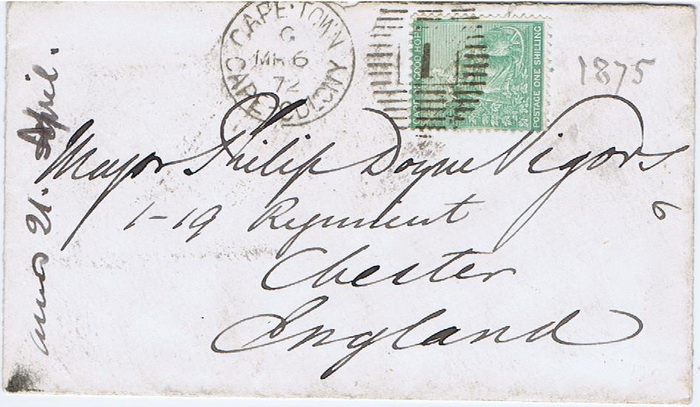 CAPE·TOWN
C
MR 6
72
CAPE COLONY
1
GOOD HOPE
POSTAGE ONE SHILLING
1875
Major Philip Doyne Vigors
1-19 Regiment
Chester
England
21. April.